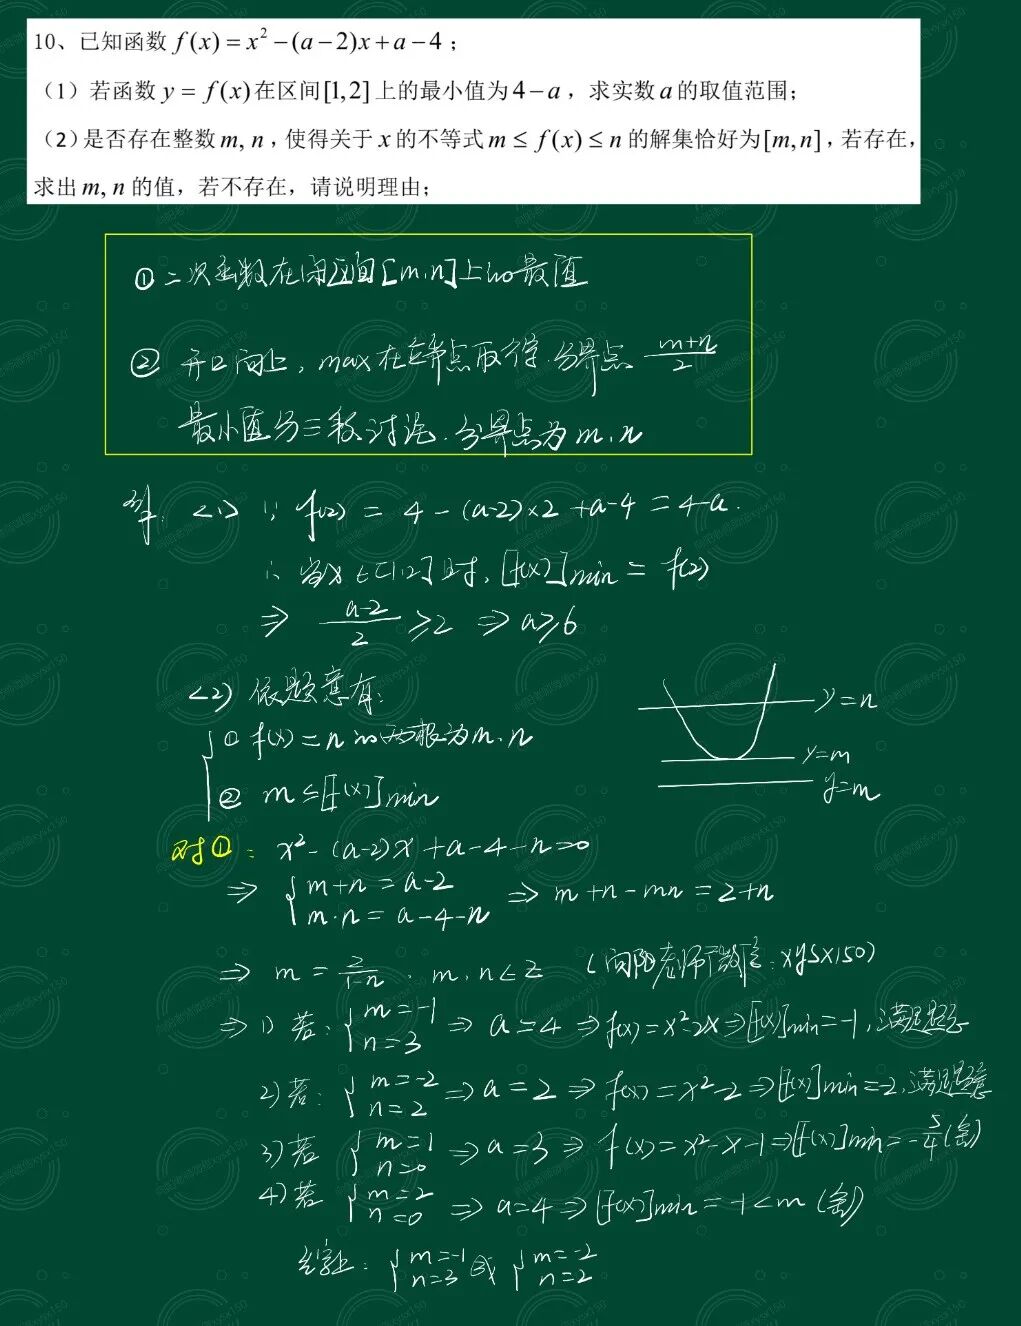 10、已知函数 f(x)=x²-(a-2)x+a-4；
（1）若函数 y=f(x)在区间[1,2]上的最小值为4-a，求实数a的取值范围；
（2）是否存在整数m,n，使得关于x的不等式m≤f(x)≤n的解集恰好为[m,n]，若存在，
求出m,n的值，若不存在，请说明理由；
① 二次函数在闭区间[m,n]上的最值
② 开口向上，max在端点取得，分界点 (m+n)/2
最小值分三种讨论，分界点为m,n
解：<1> ∵ f(2) = 4-(a-2)×2+a-4 = 4-a.
∴ 当x∈[1,2]时，[f(x)]min = f(2)
⇒ (a-2)/2 ≥2 ⇒ a≥6
<2> 依题意有：
① f(x)=n的两根为m,n
② m≤[f(x)]min
y=n
y=m
y=m
对①：x²-(a-2)x+a-4-n=0
⇒ { m+n=a-2 m·n=a-4-n ⇒ m+n-mn=2+n
⇒ m=2/(1-n)，m,n∈Z （向阳老师微信：xysx150）
⇒ 1) 若：{ m=-1 n=3 ⇒ a=4 ⇒ f(x)=x²-2x ⇒ [f(x)]min=-1，满足题意
2) 若：{ m=-2 n=2 ⇒ a=2 ⇒ f(x)=x²-2 ⇒ [f(x)]min=-2，满足题意
3) 若 { m=1 n=0 ⇒ a=3 ⇒ f(x)=x²-x-1 ⇒ [f(x)]min=-5/4 (舍)
4) 若 { m=2 n=0 ⇒ a=4 ⇒ [f(x)]min=-1<m (舍)
综上：{ m=-1 n=3 或 { m=-2 n=2